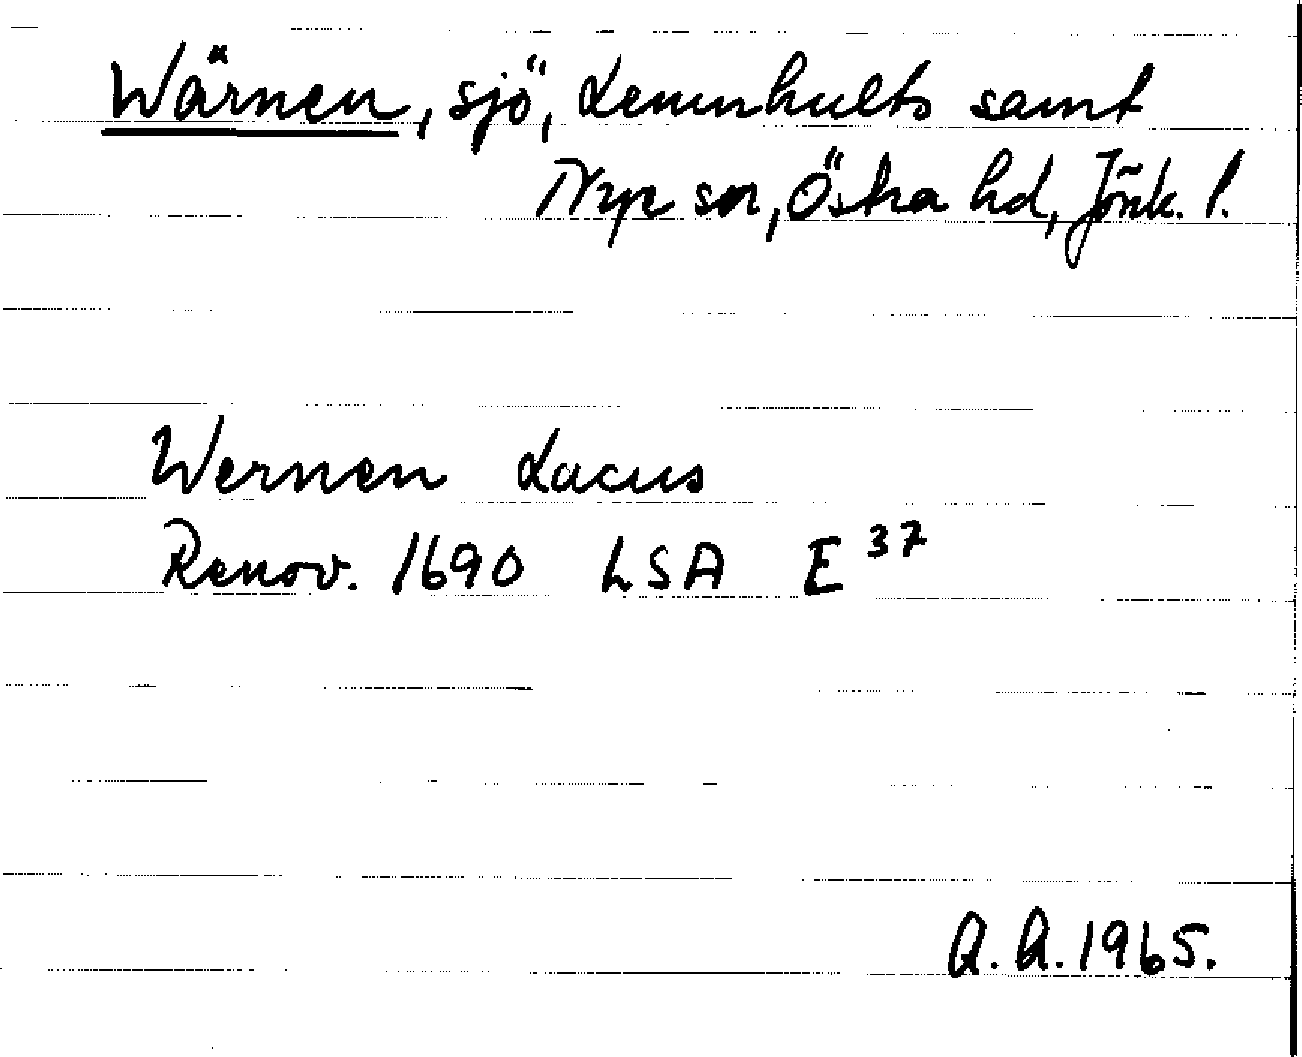 Wärnen, sjö, Lemnhults samt
Nye snr, Östra hd, Jönk. l.
Wernen Lacus
Renov. 1690 LSA E 37
A.A. 1965.